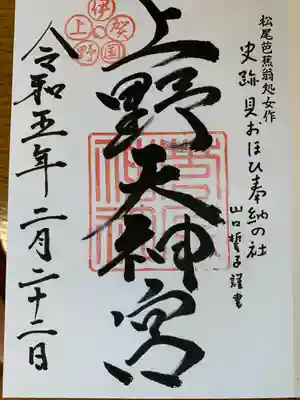 松尾芭蕉翁処女作
史跡 貝おほひ奉納の社
山口誓子謹書
伊賀国上野
上野天神宮
令和五年二月二十二日